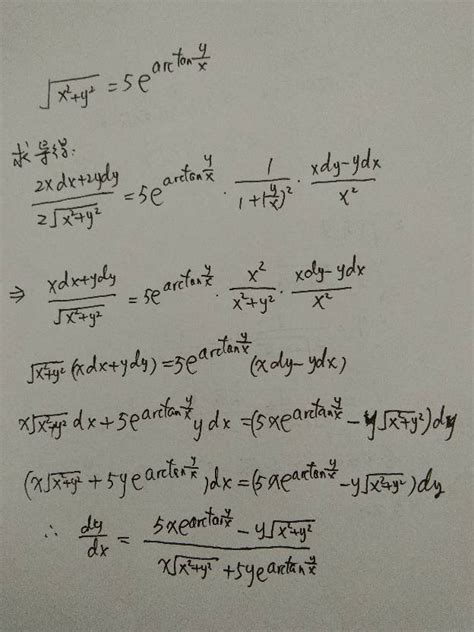 √(x²+y²) = 5e^(arctan y/x)
求导得:
(2xdx+2ydy)/(2√(x²+y²)) = 5e^(arctan y/x) · 1/(1+(y/x)²) · (xdy-ydx)/x²
⇒ (xdx+ydy)/√(x²+y²) = 5e^(arctan y/x) · x²/(x²+y²) · (xdy-ydx)/x²
√(x²+y²) (xdx+ydy) = 5e^(arctan y/x) (xdy-ydx)
x√(x²+y²) dx + 5e^(arctan y/x) y dx = (5xe^(arctan y/x) - y√(x²+y²)) dy
(x√(x²+y²) + 5ye^(arctan y/x)) dx = (5xe^(arctan y/x) - y√(x²+y²)) dy
∴ dy/dx = (5xe^(arctan y/x) - y√(x²+y²))/(x√(x²+y²) + 5ye^(arctan y/x))